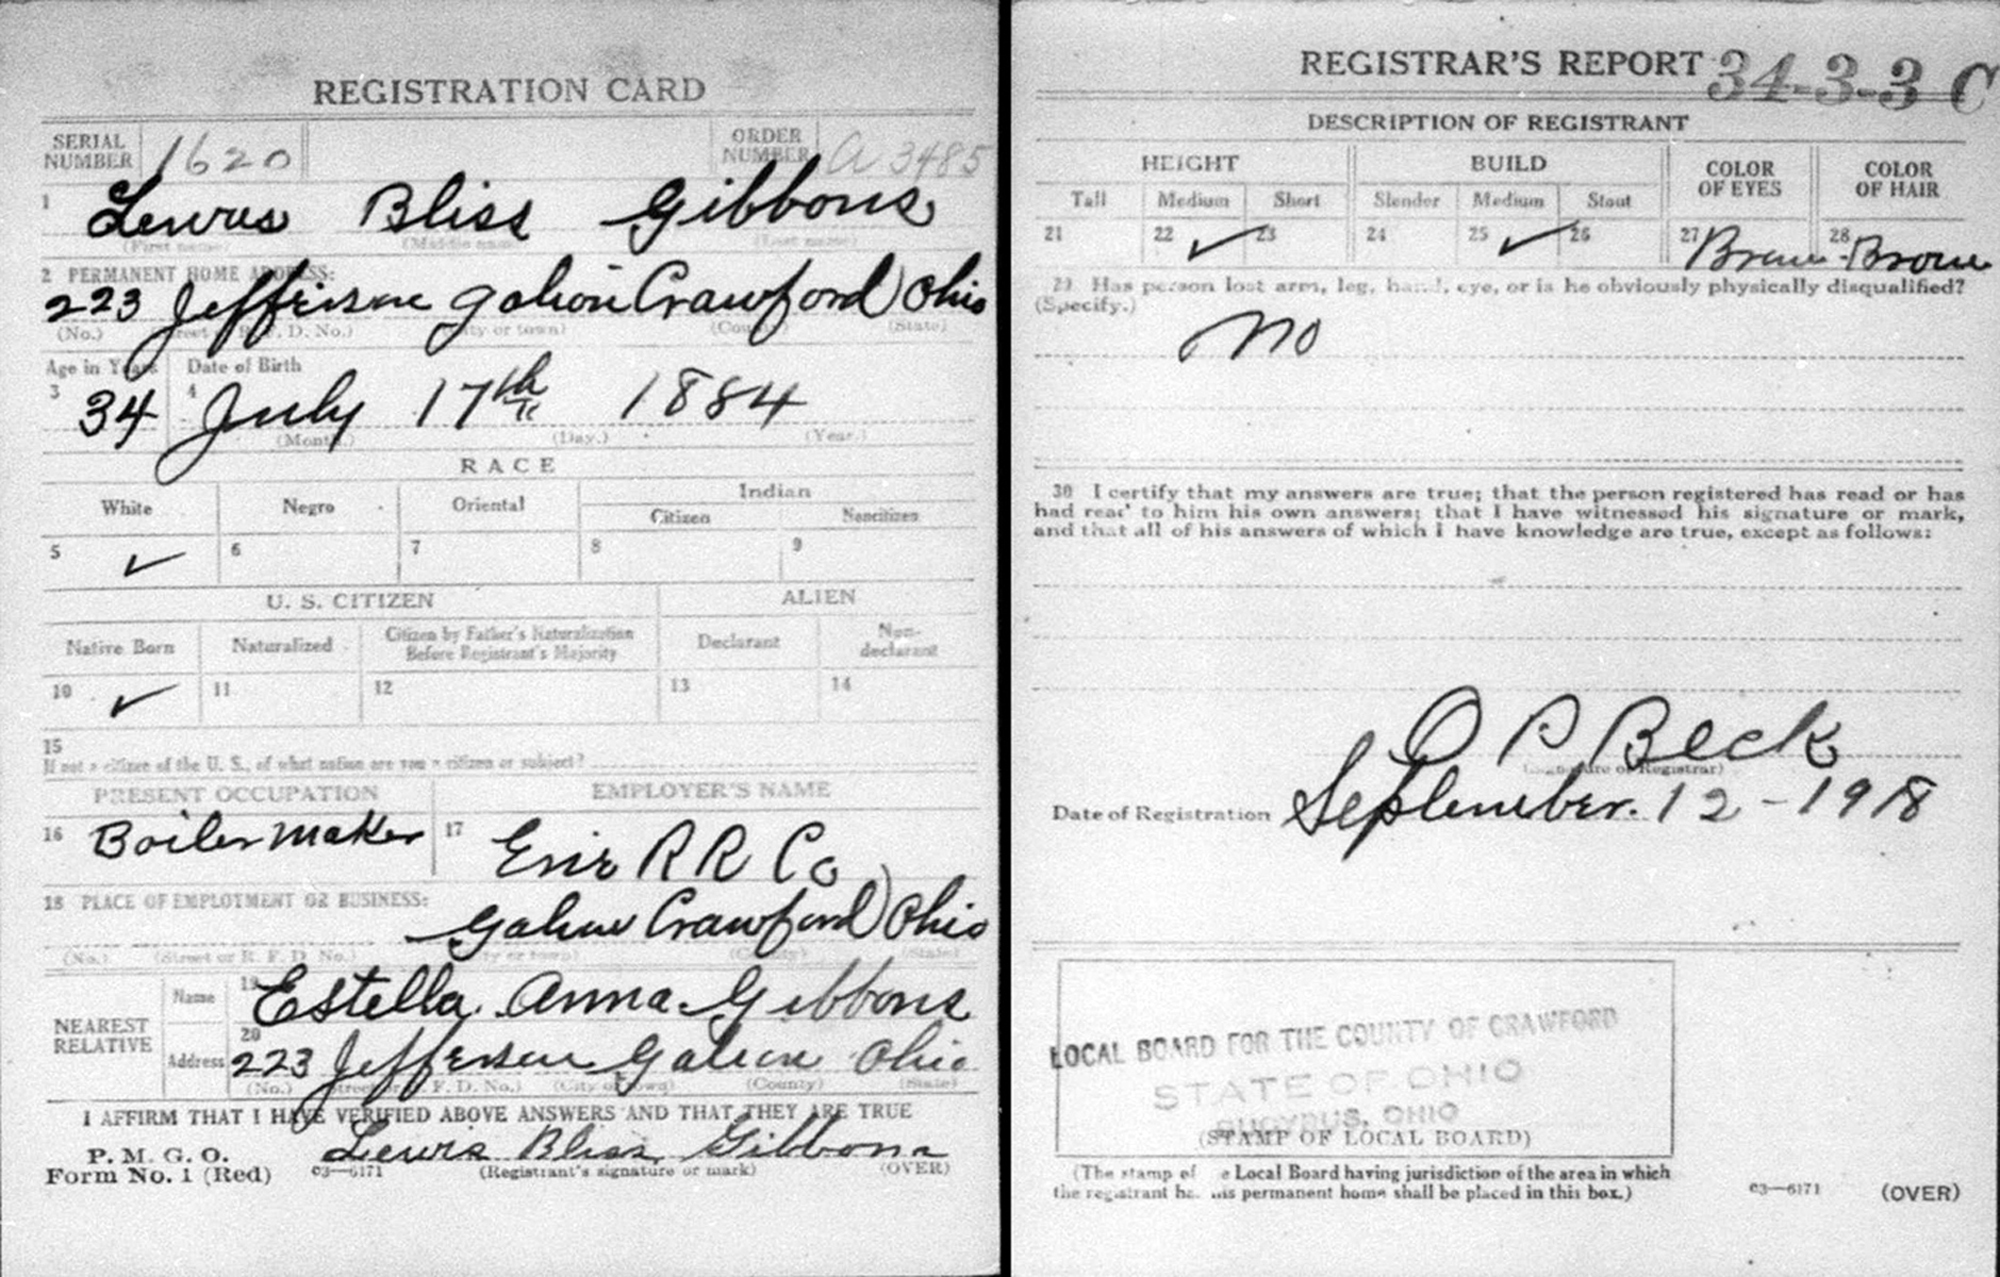 REGISTRATION CARD
SERIAL NUMBER 1620 ORDER NUMBER A 3485
1 Lewis Bliss Gibbons
(First name) (Middle name) (Last name)
2 PERMANENT HOME ADDRESS:
223 Jefferson Galion Crawford Ohio
(No.) (Street or R. F. D. No.) (City or town) (County) (State)
Age in Years Date of Birth
3 34 4 July 17th 1884
(Month.) (Day.) (Year.)
RACE
White Negro Oriental Indian
Citizen Noncitizen
5 ✓ 6 7 8 9
U. S. CITIZEN ALIEN
Native Born Naturalized Citizen by Father's Naturalization Before Registrant's Majority Declarant Non-declarant
10 ✓ 11 12 13 14
15
If not a citizen of the U. S., of what nation are you a citizen or subject?
PRESENT OCCUPATION EMPLOYER'S NAME
16 Boiler maker 17 Erie R R Co
18 PLACE OF EMPLOYMENT OR BUSINESS:
Galion Crawford Ohio
(No.) (Street or R. F. D. No.) (City or town) (County) (State)
NEAREST RELATIVE Name 19 Estella Anna Gibbons
Address 20 223 Jefferson Galion Ohio
(No.) (Street or R. F. D. No.) (City or town) (County) (State)
I AFFIRM THAT I HAVE VERIFIED ABOVE ANSWERS AND THAT THEY ARE TRUE
P. M. G. O.
Form No. 1 (Red) 03—6171 Lewis Bliss Gibbons
(Registrant's signature or mark) (OVER)
REGISTRAR'S REPORT 34-3-3 C
DESCRIPTION OF REGISTRANT
HEIGHT BUILD COLOR OF EYES COLOR OF HAIR
Tall Medium Short Slender Medium Stout
21 22 ✓ 23 24 25 ✓ 26 27 Brown 28 Brown
29 Has person lost arm, leg, hand, eye, or is he obviously physically disqualified?
(Specify.)
No
30 I certify that my answers are true; that the person registered has read or has
had read to him his own answers; that I have witnessed his signature or mark,
and that all of his answers of which I have knowledge are true, except as follows:
O P Beck
(Signature of Registrar)
Date of Registration September 12-1918
LOCAL BOARD FOR THE COUNTY OF CRAWFORD
STATE OF OHIO
BUCYRUS, OHIO
(STAMP OF LOCAL BOARD)
(The stamp of the Local Board having jurisdiction of the area in which
the registrant has his permanent home shall be placed in this box.)
03—6171 (OVER)